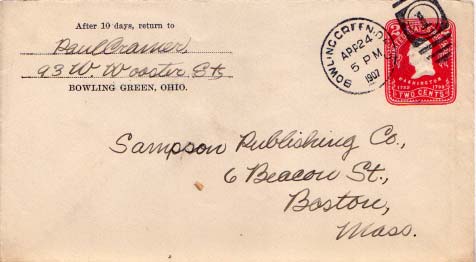 After 10 days, return to
Paul Cramer,
93 W. Wooster St,
BOWLING GREEN, OHIO.
BOWLING GREEN, O.
APR 24
5 PM
1907
UNITED STATES
WASHINGTON
1732 1799
TWO CENTS
Sampson Publishing Co.,
6 Beacon St.,
Boston,
Mass.